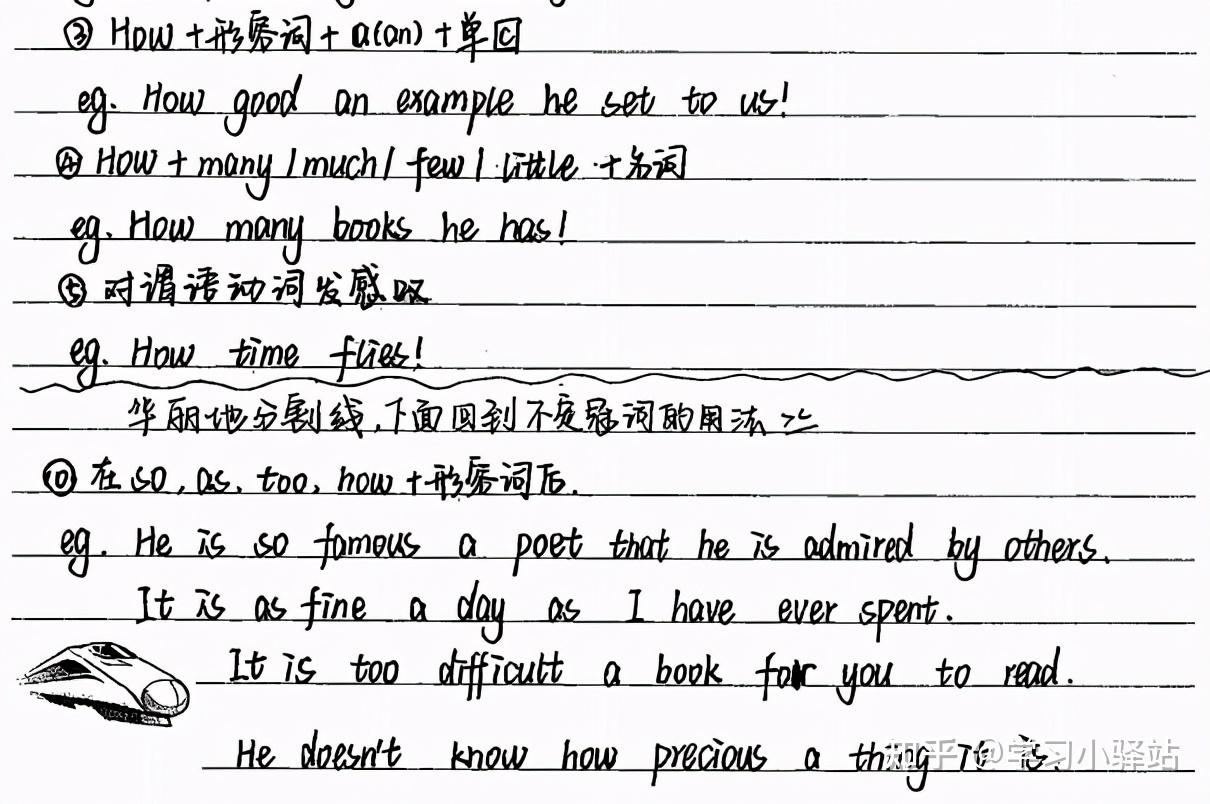 ③ How +形容词 + a(an) + 单可
eg. How good an example he set to us!
④ How + many / much / few / little + 名词
eg. How many books he has!
⑤ 对谓语动词发感叹
eg. How time flies!
华丽地分割线,下面回到不定冠词的用法
⑩ 在 so, as, too, how +形容词后.
eg. He is so famous a poet that he is admired by others.
It is as fine a day as I have ever spent.
It is too difficult a book for you to read.
He doesn't know how precious a thing it is.
知乎 @学习小驿站